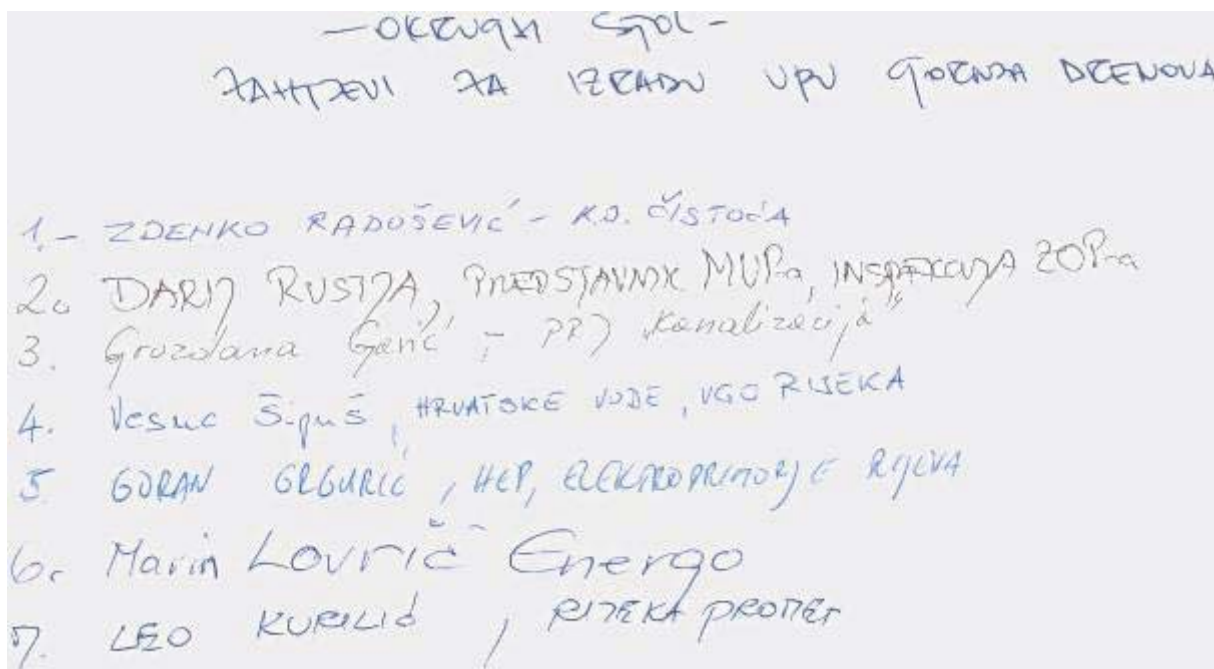 — OKRUGLI STOL —
ZAHTJEVI ZA IZRADU UPU GORNJA DRENOVA
1. – ZDENKO RADOŠEVIĆ – K.D. ČISTOĆA
2. DARIJ RUSTJA, PREDSTAVNIK MUP-a, INSPEKCIJA ZOP-a
3. Grozdana Gerić – PRJ „Kanalizacija“
4. Vesna Šipuš, HRVATSKE VODE, VGO RIJEKA
5 GORAN GRGURIĆ, HEP, ELEKTROPRIMORJE RIJEKA
6. Marin Lovrić Energo
7. LEO KURILIĆ, RIJEKA PROMET